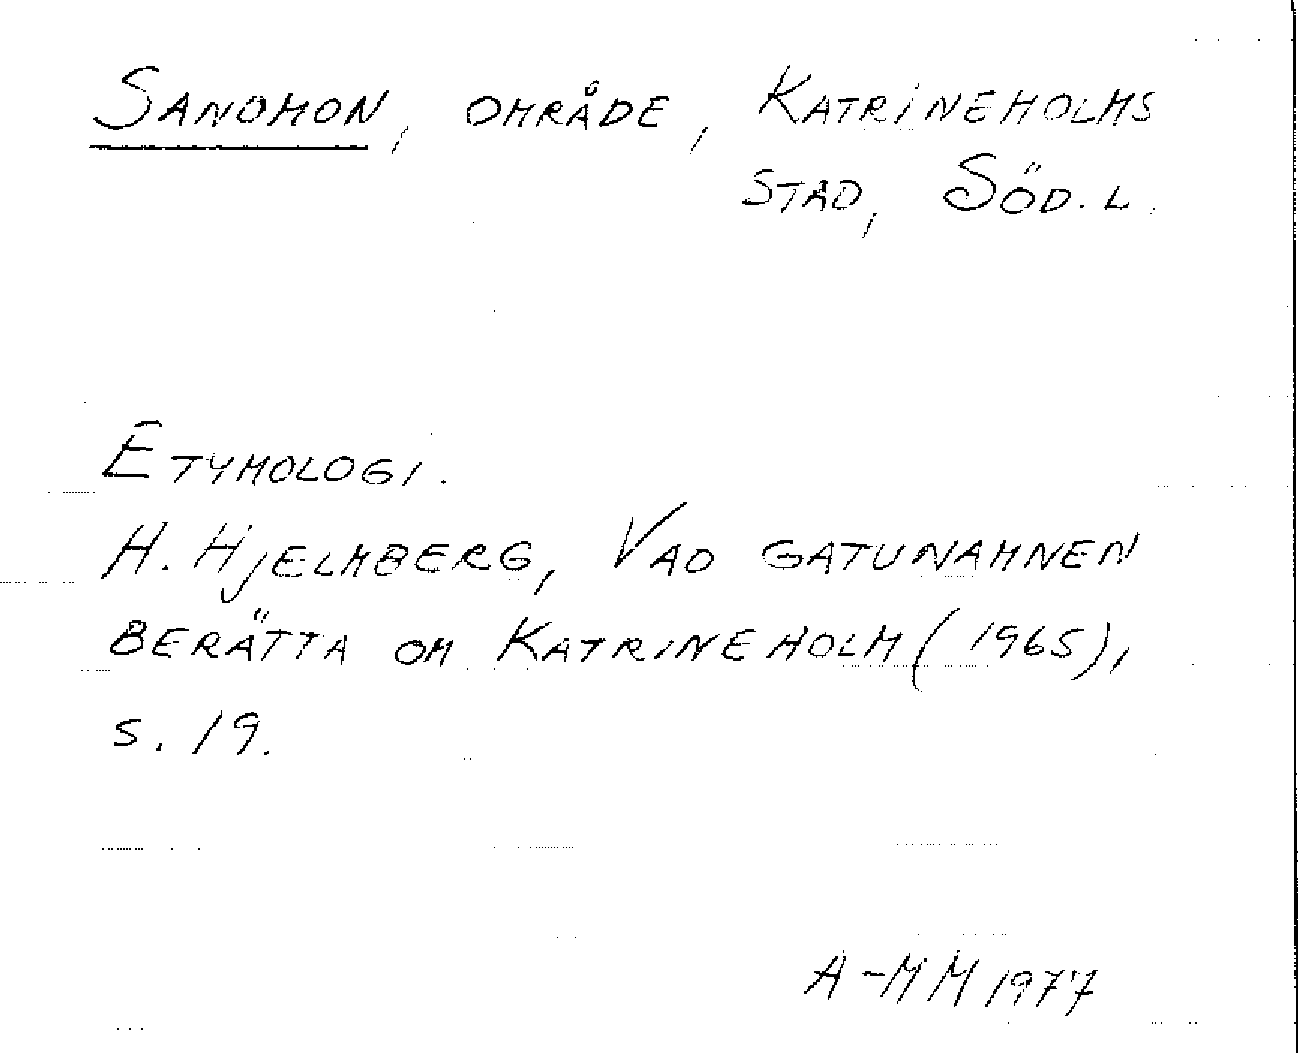 SANDMON, OMRÅDE, KATRINEHOLMS
STAD, SÖD. L.
ETYMOLOGI.
H. HJELMBERG, VAD GATUNAMNEN
BERÄTTA OM KATRINEHOLM (1965),
S. 19.
A-MM 1977